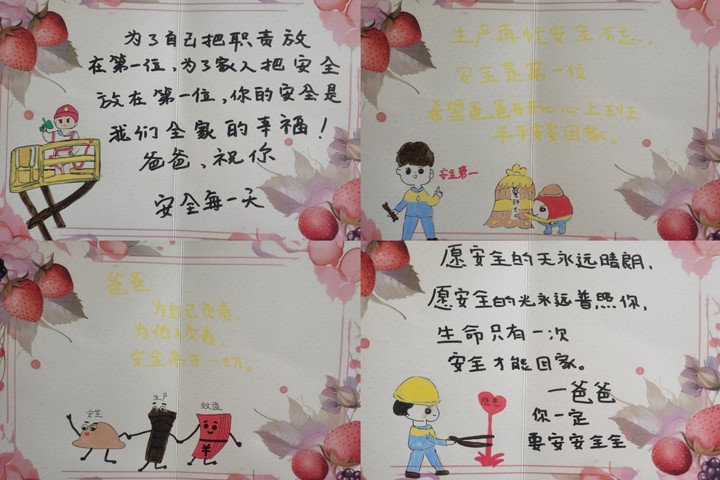 为了自己把职责放
在第一位,为了家人把安全
放在第一位,你的安全是
我们全家的幸福!
爸爸、祝你
安全每一天
生产再忙安全不忘..
安全是第一位
希望爸爸开开心心上班
平平安安回家。
安全第一
爸爸:
为自己负责,
为他人负责,
安全高于一切。
安全
生产
效益
愿安全的天永远晴朗,
愿安全的光永远普照你,
生命只有一次
安全才能回家。
一爸爸
你一定
要安安全全